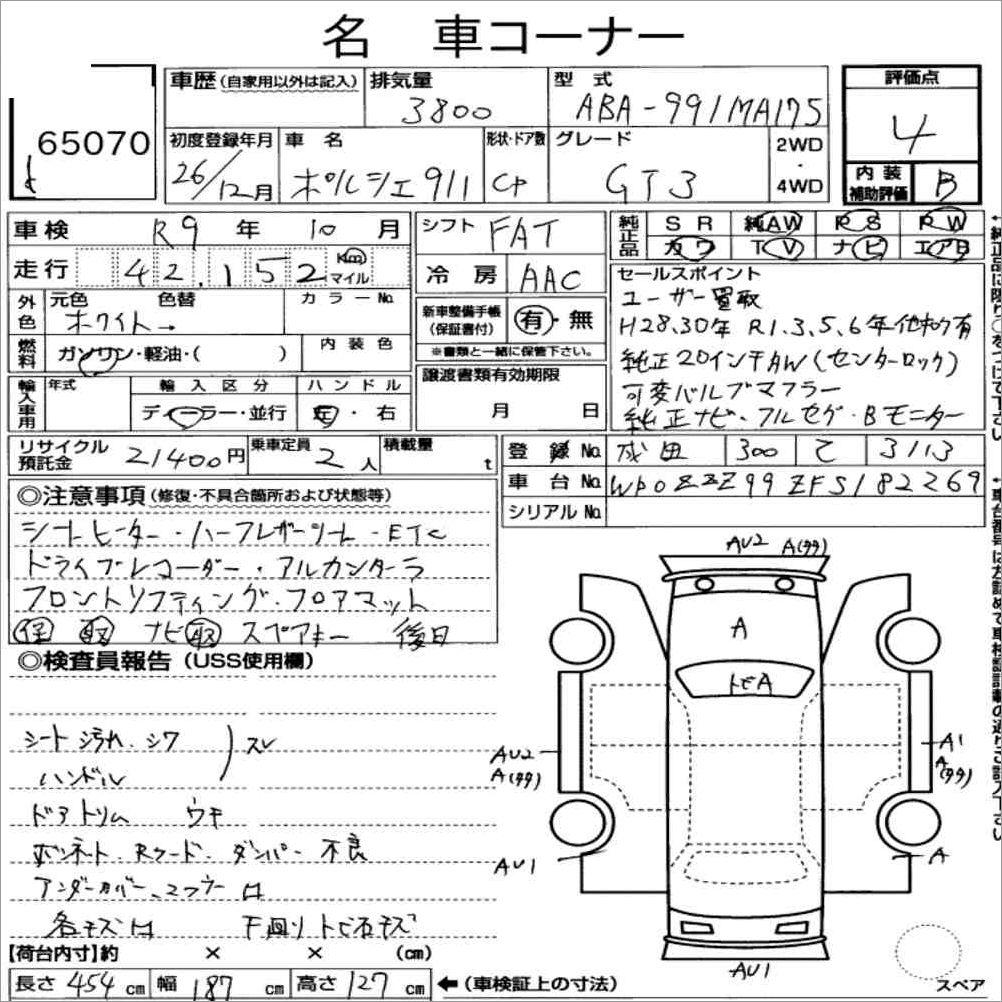 名 車コーナー
65070
車歴 (自家用以外は記入) 排気量 3800 型式 ABA-991MA175
初度登録年月 26/12月 車名 ポルシェ911 形状・ドア数 CP グレード GT3 2WD・4WD
評価点 4
内装補助評価 B
車検 R9 年 10 月 シフト FAT
走行 42,152 Km マイル 冷房 AAC
純正品 SR 純AW PS PW
カワ TV ナビ エアB
外色 元色 ホワイト→ 色替 カラーNo.
燃料 ガソリン・軽油・( ) 内装色
新車整備手帳(保証書付) 有・無
※書類と一緒に保管下さい。
輸入車用 年式 輸入区分 ディーラー・並行 ハンドル 左・右
譲渡書類有効期限 月 日
セールスポイント
ユーザー買取
H28.30年 R1.3.5.6年他記有
純正20インチAW(センターロック)
可変バルブマフラー
純正ナビ・フルセグ・Bモニター
リサイクル預託金 21400円 乗車定員 2人 積載量 t
登録No. 成田 300 3113
車台No. WP0ZZZ99ZFS182269
シリアルNo.
◎注意事項 (修復・不具合箇所および状態等)
シートヒーター・ハーフレザーシート・ETC
ドライブレコーダー・アルカンターラ
フロントリフティング・フロアマット
保 取 ナビ取 スペアキー 後日
◎検査員報告 (USS使用欄)
シート汚れ.シワ スレ
ハンドル
ドアトリム ウキ
ボンネット.Rフード.ダンパー 不良
アンダーカバー.マフラー
各キズ 下廻リトビ石キズ
AU2 A(タタ)
A
トビA
AU2
A(タタ)
A1
A(タタ)
AU1
A
AU1
【荷台内寸】約 × × (cm)
長さ 454 cm 幅 187 cm 高さ 127 cm ←(車検証上の寸法)
スペア